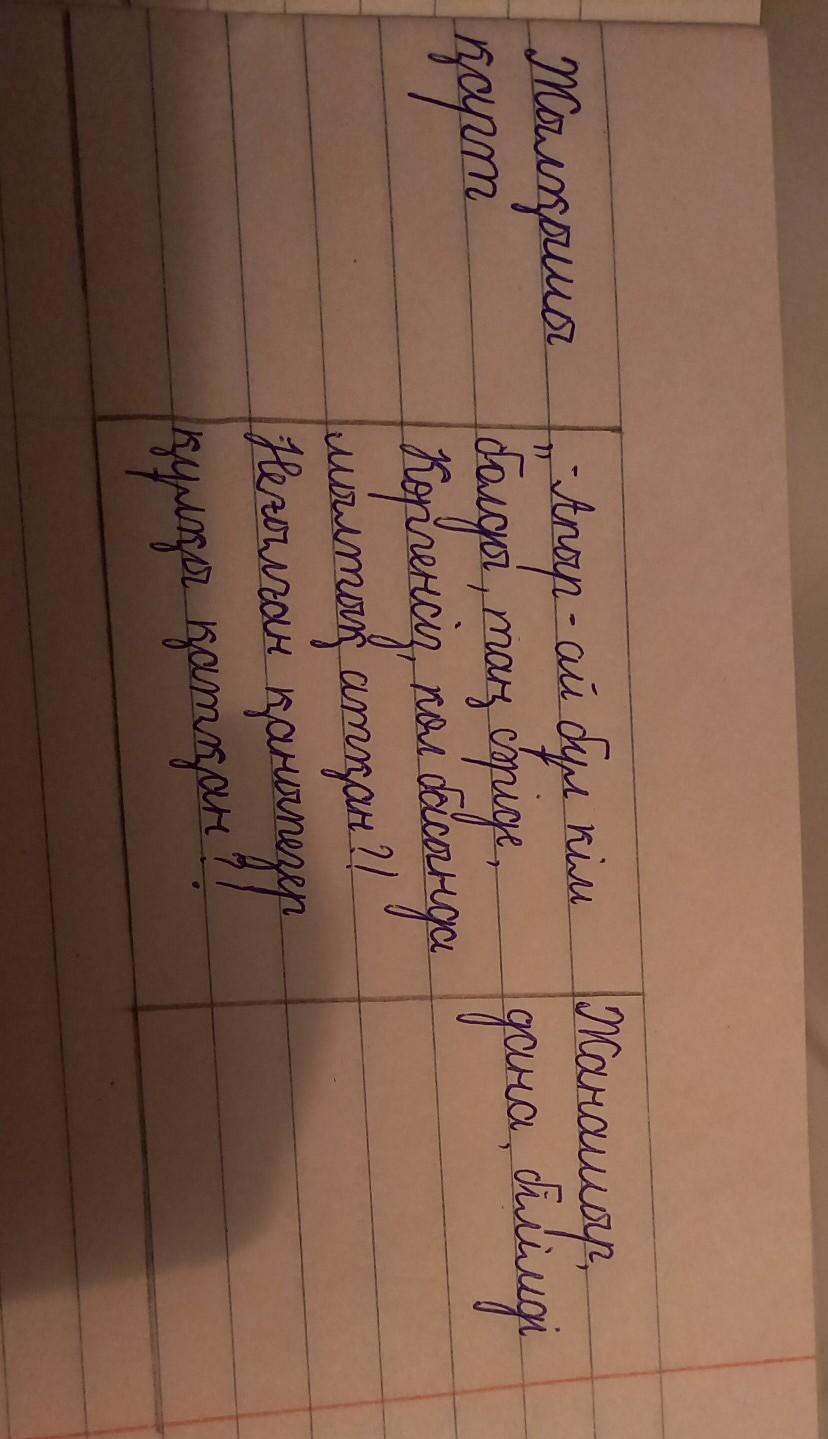 Жылқышы
қарт
„- Апыр - ай бұл кім
болды, таң сәріде,
Көргенсіз, көл басында
мылтық атқан?!
Неғылған қаныпезер
құлқы қатқан?!
Жанашыр,
дана, білімді